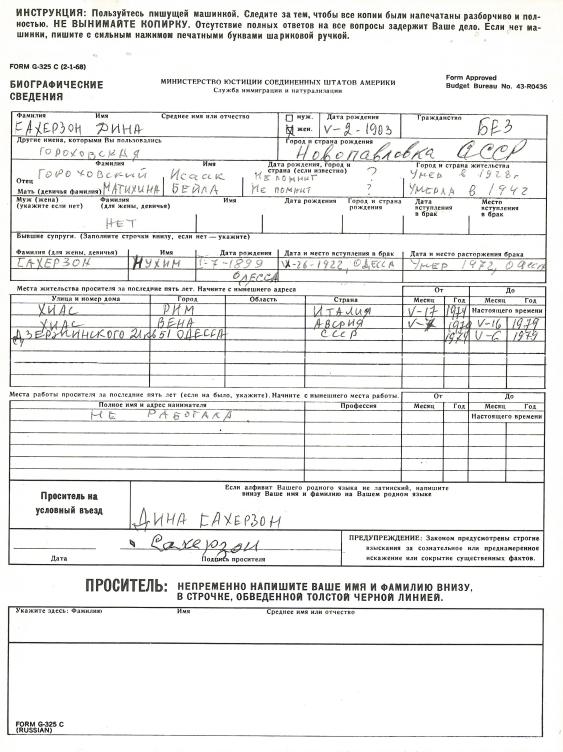 ИНСТРУКЦИЯ: Пользуйтесь пишущей машинкой. Следите за тем, чтобы все копии были напечатаны разборчиво и пол-
ностью. НЕ ВЫНИМАЙТЕ КОПИРКУ. Отсутствие полных ответов на все вопросы задержит Ваше дело. Если нет ма-
шинки, пишите с сильным нажимом печатными буквами шариковой ручкой.
FORM G-325 C (2-1-68)
БИОГРАФИЧЕСКИЕ СВЕДЕНИЯ
МИНИСТЕРСТВО ЮСТИЦИИ СОЕДИНЕННЫХ ШТАТОВ АМЕРИКИ
Служба иммиграции и натурализации
Form Approved
Budget Bureau No. 43-R0436
Фамилия Имя Среднее имя или отчество муж. жен. Дата рождения Гражданство
САХЕРЗОН ДИНА V-2-1903 БЕЗ
Другие имена, которыми Вы пользовались Город и страна рождения
ГОРОХОВСКАЯ Новопавловка СССР
Фамилия Имя Дата рождения, Город и страна (если известно) Город и страна жительства
Отец ГОРОХОВСКИЙ Исаак НЕ ПОМНИТ ? Умер в 1928г
Мать (девичья фамилия) МАТИХИНА БЕЙЛА Не помнит ? УМЕРЛА В 1942
Муж (жена) (укажите если нет) Фамилия (для жены, девичья) Имя Дата рождения Город и страна рождения Дата вступления в брак Место вступления в брак
НЕТ
Бывшие супруги. (Заполните строчки внизу, если нет — укажите)
Фамилия (для жены, девичья) Имя Дата рождения Дата и место вступления в брак Дата и место расторжения брака
САХЕРЗОН НУХИМ I-7-1899 V-26-1922, ОДЕССА Умер 1972, Одесса
ОДЕССА
Места жительства просителя за последние пять лет. Начните с нынешнего адреса От До
Улица и номер дома Город Область Страна Месяц Год Месяц Год
ХИАС РИМ ИТАЛИЯ V-17 1979 Настоящего времени
ХИАС ВЕНА АВСРИЯ V-7 1979 V-16 1979
ДЗЕРЖИНСКОГО 21 кв51 ОДЕССА СССР 1979 V-6 1979
Места работы просителя за последние пять лет (если на было, укажите). Начните с нынешнего места работы. От До
Полное имя и адрес нанимателя Профессия Месяц Год Месяц Год
НЕ РАБОТАЛА Настоящего времени
Проситель на условный въезд
Если алфивит Вашего родного языка не латинский, напишите
внизу Ваше имя и фамилию на Вашем родном языке
ДИНА САХЕРЗОН
Сахерзон
Дата Подпись просителя
ПРЕДУПРЕЖДЕНИЕ: Законом предусмотрены строгие
взыскания за сознательное или преднамеренное
искажение или сокрытие существенных фактов.
ПРОСИТЕЛЬ: НЕПРЕМЕННО НАПИШИТЕ ВАШЕ ИМЯ И ФАМИЛИЮ ВНИЗУ,
В СТРОЧКЕ, ОБВЕДЕННОЙ ТОЛСТОЙ ЧЕРНОЙ ЛИНИЕЙ.
Укажите здесь: Фамилию Имя Среднее имя или отчество
FORM G-325 C
(RUSSIAN)